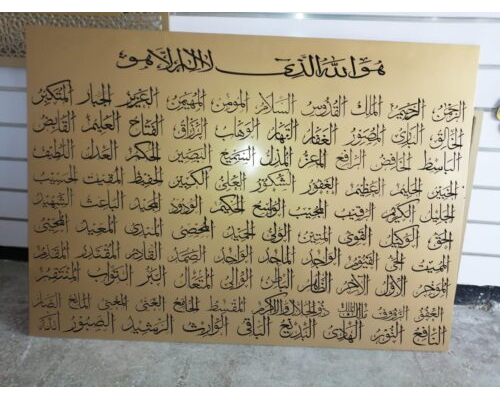 هو الله الذي لا إله إلا هو
الرحمن الرحيم الملك القدوس السلام المومن المهيمن العزيز الجبار المتكبر
الخالق البارئ المصور الغفار القهار الوهاب الرزاق الفتاح العليم القابض
الباسط الخافض الرافع المعز المذل السميع البصير الحكم العدل اللطيف
الخبير الحليم العظيم الغفور الشكور العلي الكبير الحفيظ المقيت الحسيب
الجليل الكريم الرقيب المجيب الواسع الحكيم الودود المجيد الباعث الشهيد
الحق الوكيل القوي المتين الولي الحميد المحصي المبدئ المعيد المحيي
المميت الحي القيوم الواجد الماجد الواحد الصمد القادر المقتدر المقدم
الموخر الأول الآخر الظاهر الباطن الوالي المتعال البر التواب المنتقم
العفو الرؤوف مالك الملك ذو الجلال والإكرام المقسط الجامع الغني المغني المانع الضار
النافع النور الهادي البديع الباقي الوارث الرشيد الصبور